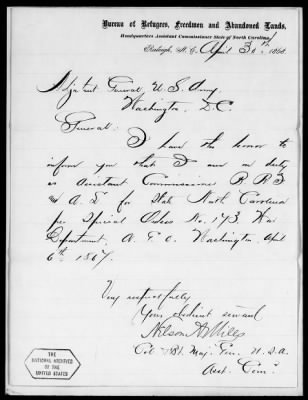 Bureau of Refugees, Freedmen and Abandoned Lands,
Headquarters Assistant Commissioner State of North Carolina,
Raleigh, N. C., April 30th, 1868.
Adjutant General U. S. Army,
Washington, D. C.
General:
I have the honor to
inform you that I am on duty
as Assistant Commissioner B. R. F.
& A. L. for State North Carolina
per Special Orders No. 173, War
Department, A. G. O. Washington, April
6th 1867.
Very respectfully
Your obedient servant
Nelson A Miles
Col & Bt. Maj. Gen. U. S. A.
Asst. Com'r
THE
NATIONAL ARCHIVES
OF THE
UNITED STATES